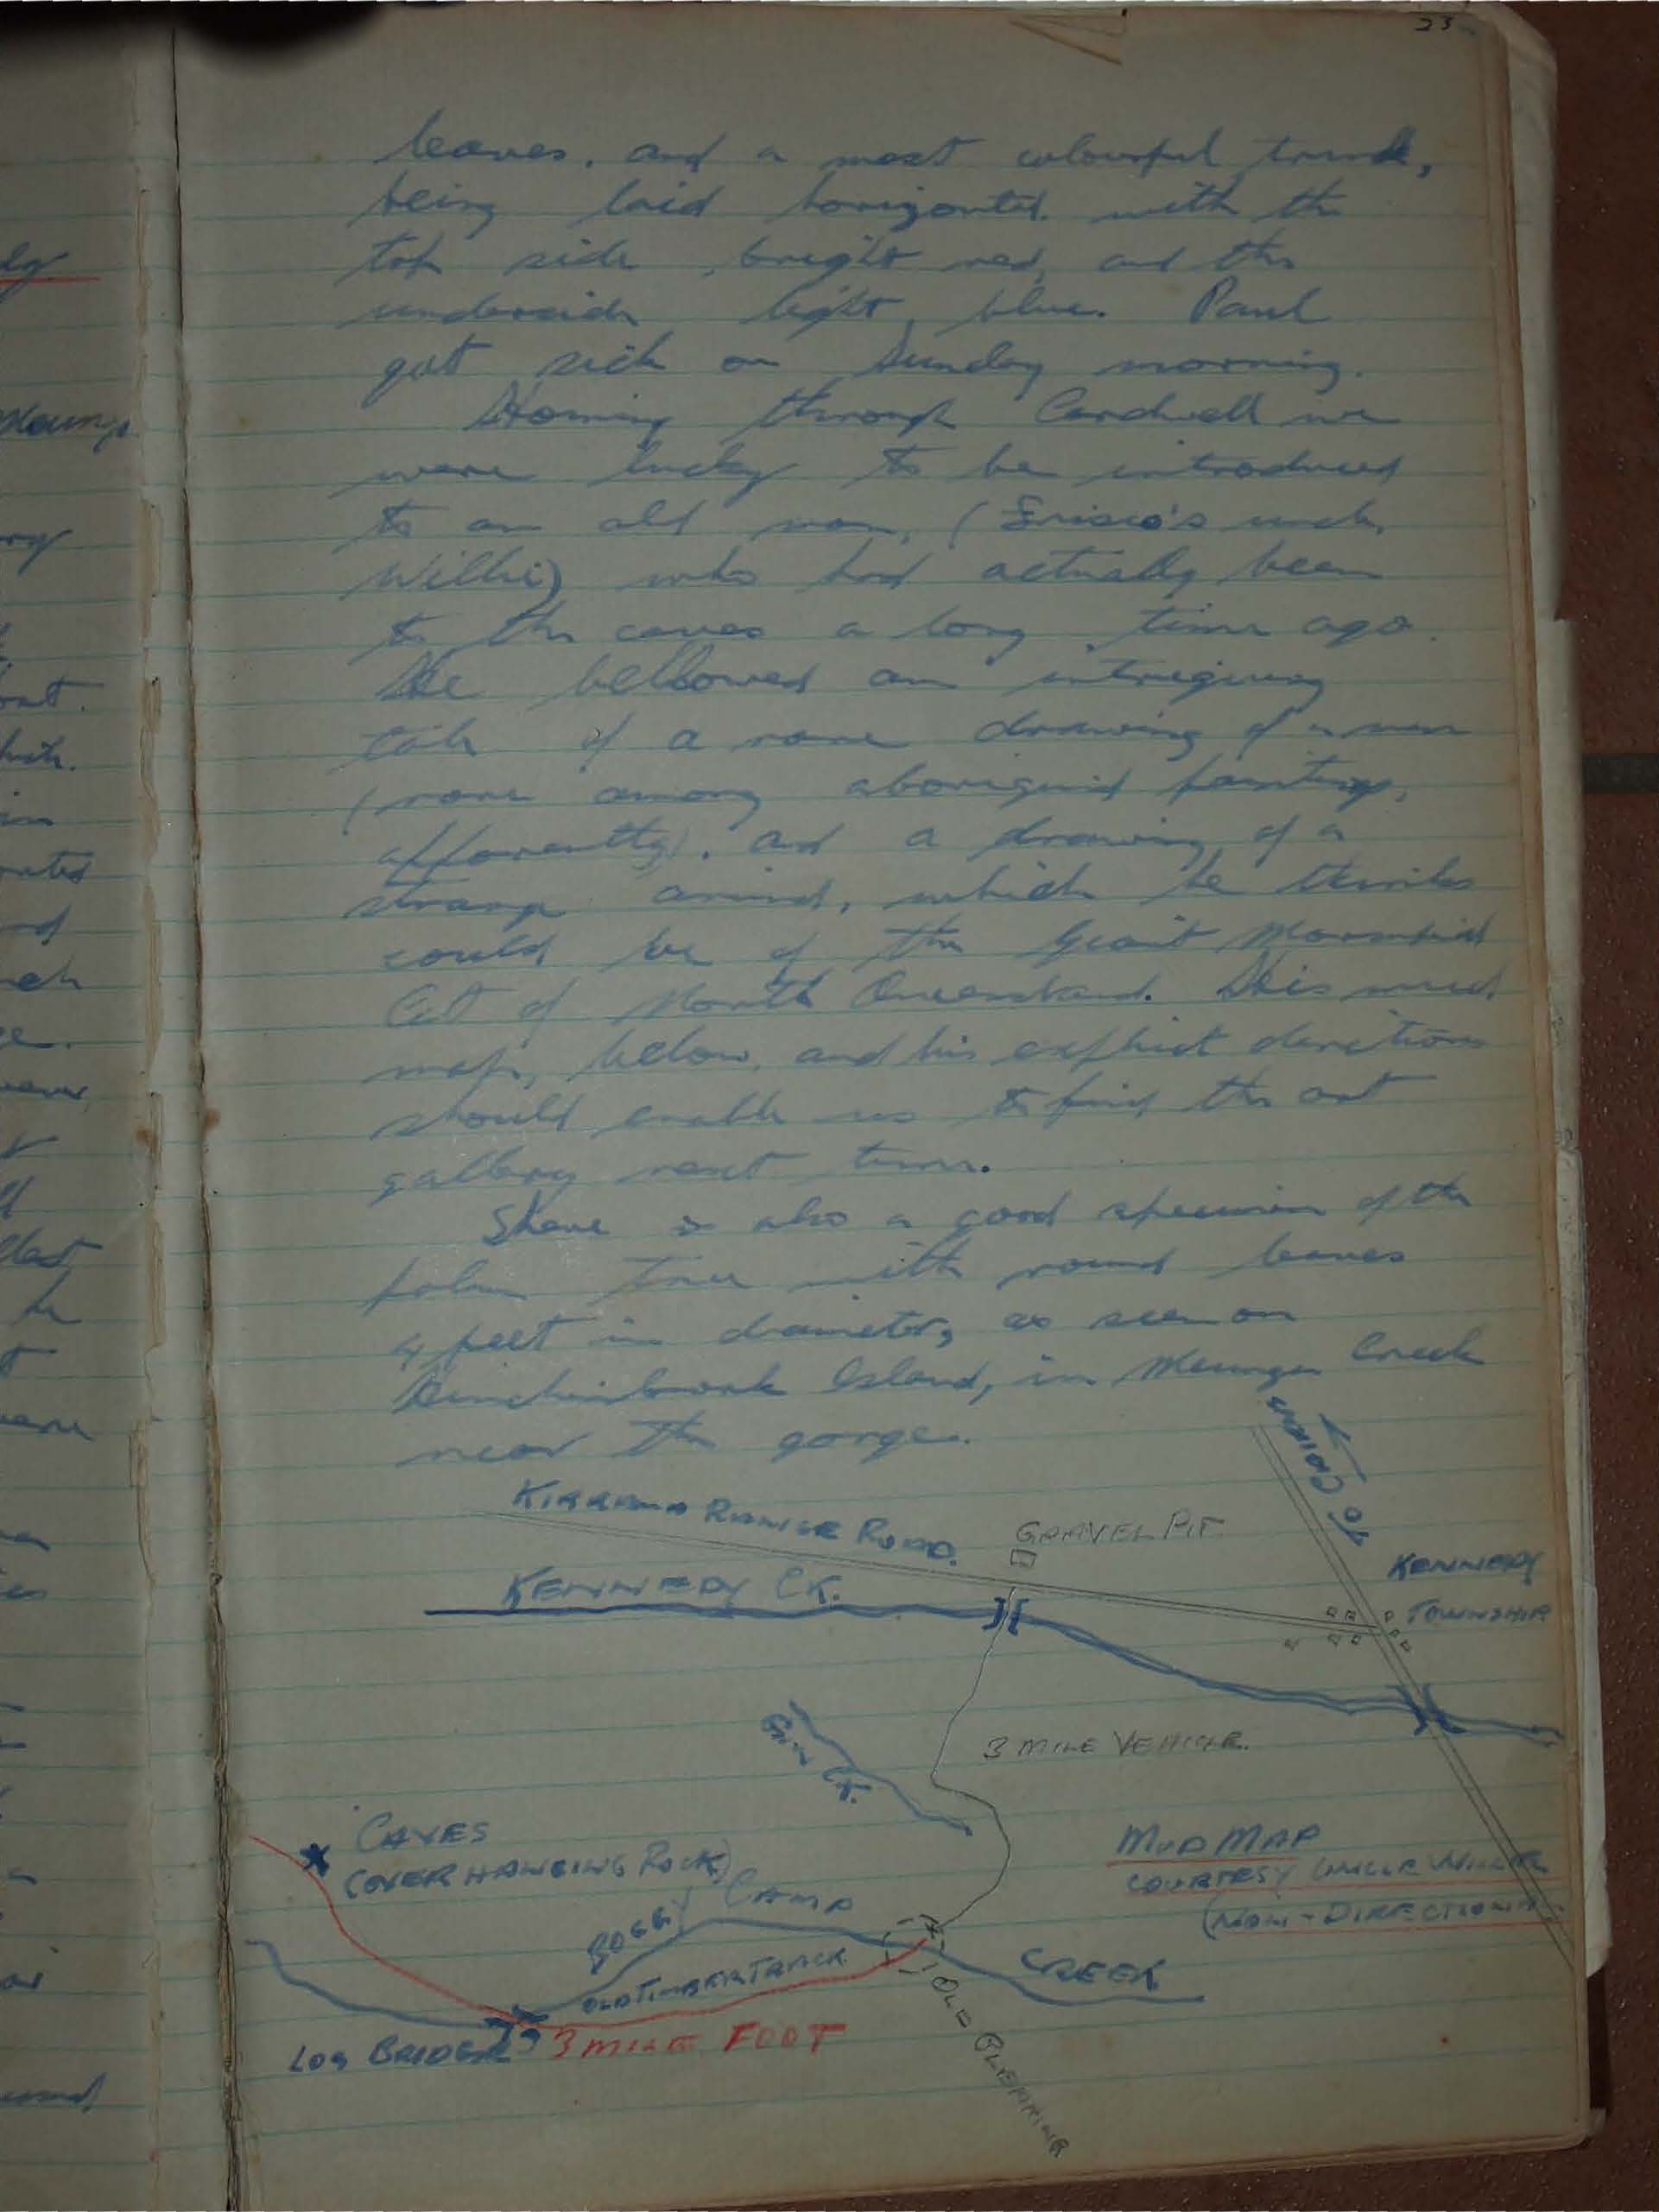 23
leaves, and a most colourful trunk,
being laid horizontal with the
top side, bright red, and the
underside light blue. Paul
got sick on Sunday morning.
Homing through Cardwell we
were lucky to be introduced
to an old man, (Frisco's uncle,
Willie) who had actually been
to the caves a long time ago.
He bellowed an intriguing
tale of a rare drawing of a man
(rare among aboriginal paintings,
apparently), and a drawing of a
strange animal, which he thinks
could be of the Giant Marsupial
Cat of North Queensland. His mud
map, below, and his explicit directions
should enable us to find the art
gallery next time.
There is also a good specimen of the
palm tree with round leaves
4 feet in diameter, as seen on
Hinchinbrook Island, in Meunga Creek
near the gorge.
TO CAIRNS
KIRRAMA RANGE ROAD.
GRAVEL PIT
KENNEDY CK.
KENNEDY
TOWNSHIP
3 MILE VEHICLE.
CK.
CAVES
(OVERHANGING ROCK)
MUD MAP
COURTESY UNCLE WILLIE
(NON-DIRECTIONAL)
BOGGY CAMP
CREEK
OLD TIMBER TRACK
LOG BRIDGE
3 MILE FOOT
OLD CLEARING